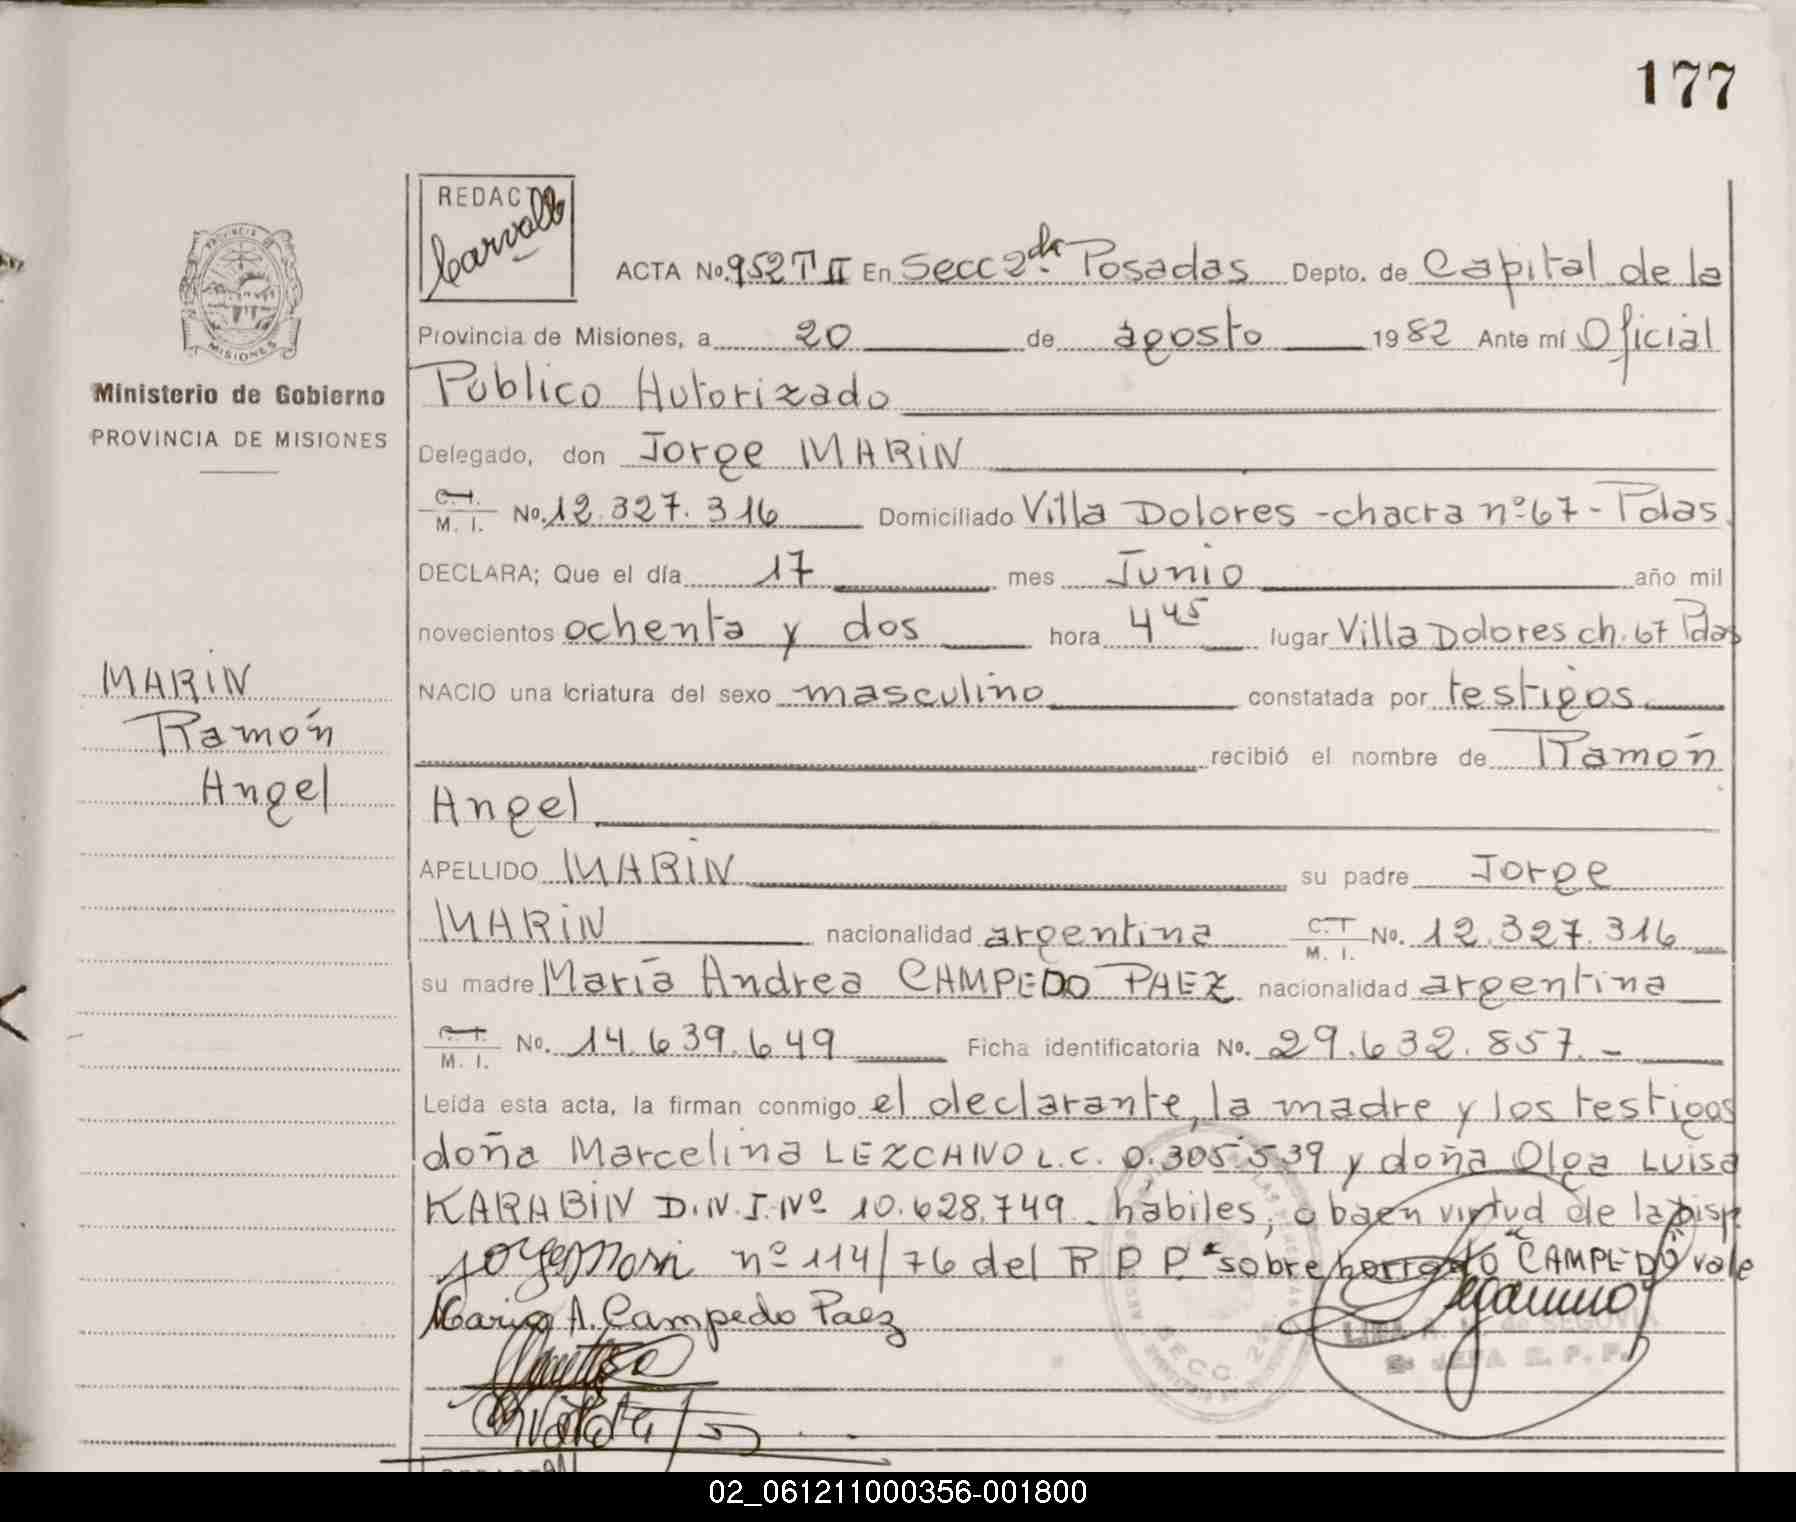 177
REDACTO
Carvallo
PROVINCIA DE
MISIONES
Ministerio de Gobierno
PROVINCIA DE MISIONES
MARIN
Ramón
Angel
ACTA No. 952 T II En Secc 2da. Posadas Depto. de Capital de la
Provincia de Misiones, a 20 de agosto 1982 Ante mí Oficial
Público Autorizado
Delegado, don Jorge MARIN
C.I. M. I. No. 12.327.316 Domiciliado Villa Dolores - chacra nº 67 - Pdas.
DECLARA; Que el día 17 mes Junio año mil
novecientos ochenta y dos hora 4 45 lugar Villa Dolores ch. 67 Pdas
NACIO una criatura del sexo masculino constatada por testigos
recibió el nombre de Ramón
Angel
APELLIDO MARIN su padre Jorge
MARIN nacionalidad argentina C.T M. I. No. 12.327.316
su madre María Andrea CAMPEDO PAEZ nacionalidad argentina
M. I. No. 14.639.649 Ficha identificatoria No. 29.632.857.-
Leída esta acta, la firman conmigo el declarante, la madre y los testigos
doña Marcelina LEZCANO L.C. 0.305.539 y doña Olga Luisa
KARABIN D.N.I. Nº 10.628.749 - habiles, obaen virtud de la Disp.
nº 114/76 del R P P. "sobre borrado "CAMPEDO" vale
Maria A. Campedo Paez
SECC. 2da
de SEGOVIA
JEFA R. P. P.
02_061211000356-001800